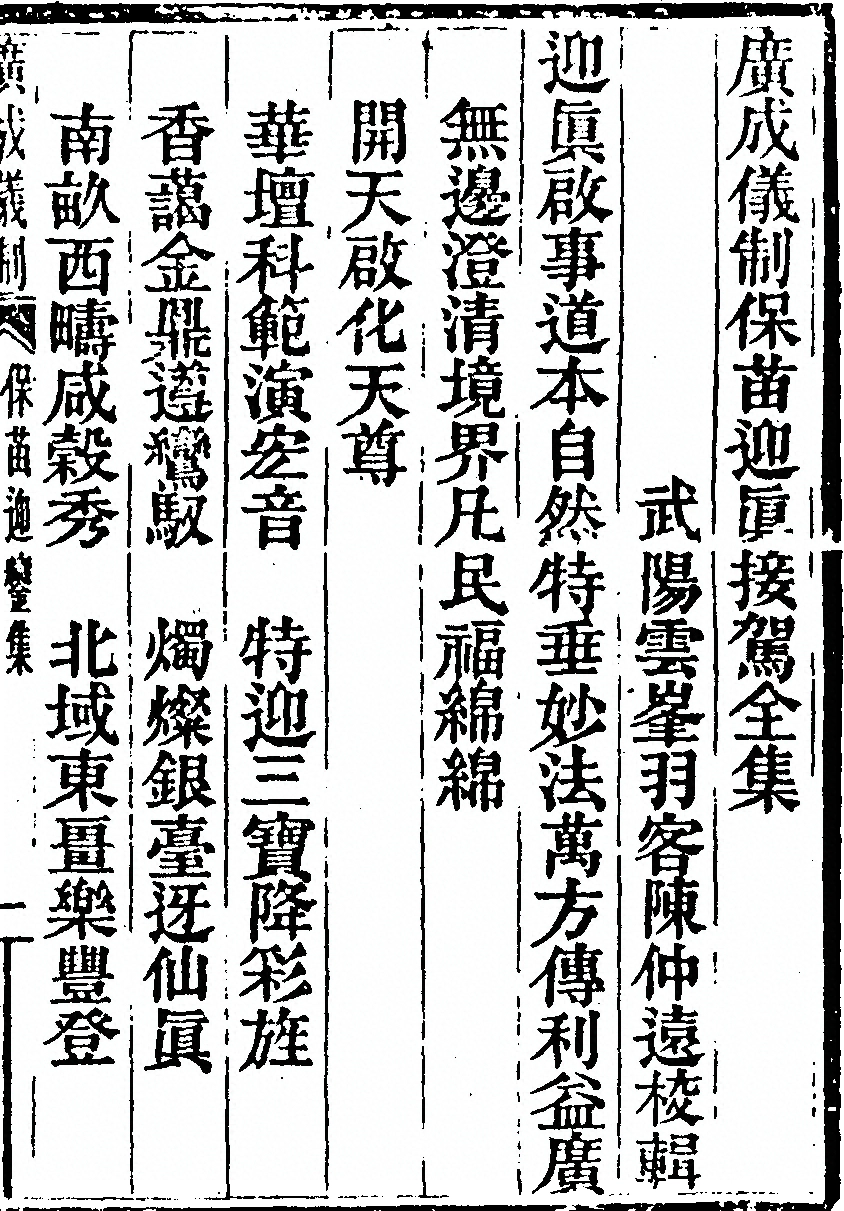 廣成儀制保苗迎眞接駕全集
武陽雲峯羽客陳仲遠校輯
迎眞啟事道本自然特垂妙法萬方傳利益廣
無邊澄清境界凡民福綿綿
開天啟化天尊
華壇科範演宏音　特迎三寶降彩旌
香藹金鼎遵鸞馭　燭燦銀臺迓仙眞
南畝西疇咸穀秀　北域東畺樂豐登
廣成儀制　保苗迎鑾集　一